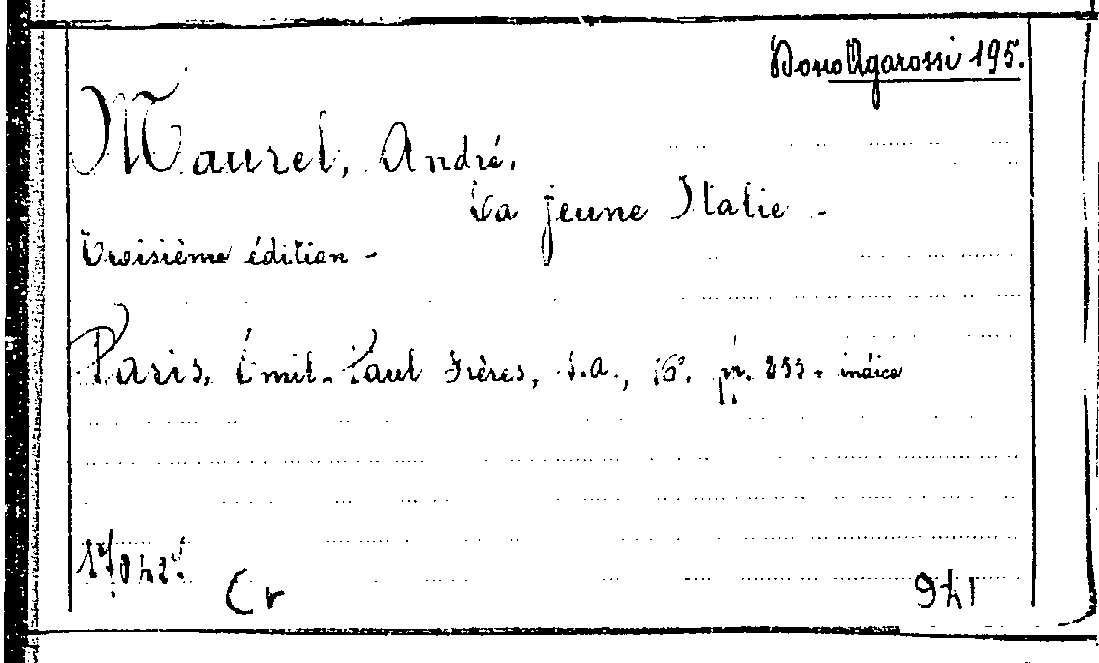 Dono Agarossi 195.
Maurel, André.
La jeune Italie -
Troisième édition -
Paris. Émil. Paul Frères, s.a., 16°. pp. 255 - indice
Cr